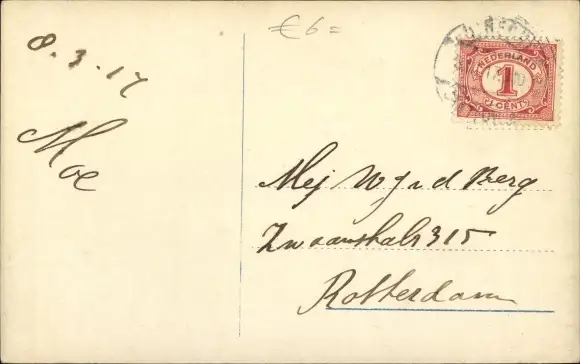 € 6 =
8.3.17
Moe
NEDERLAND
1
1 CENT
Mej W J v d Berg
Zwaanshals 315
Rotterdam